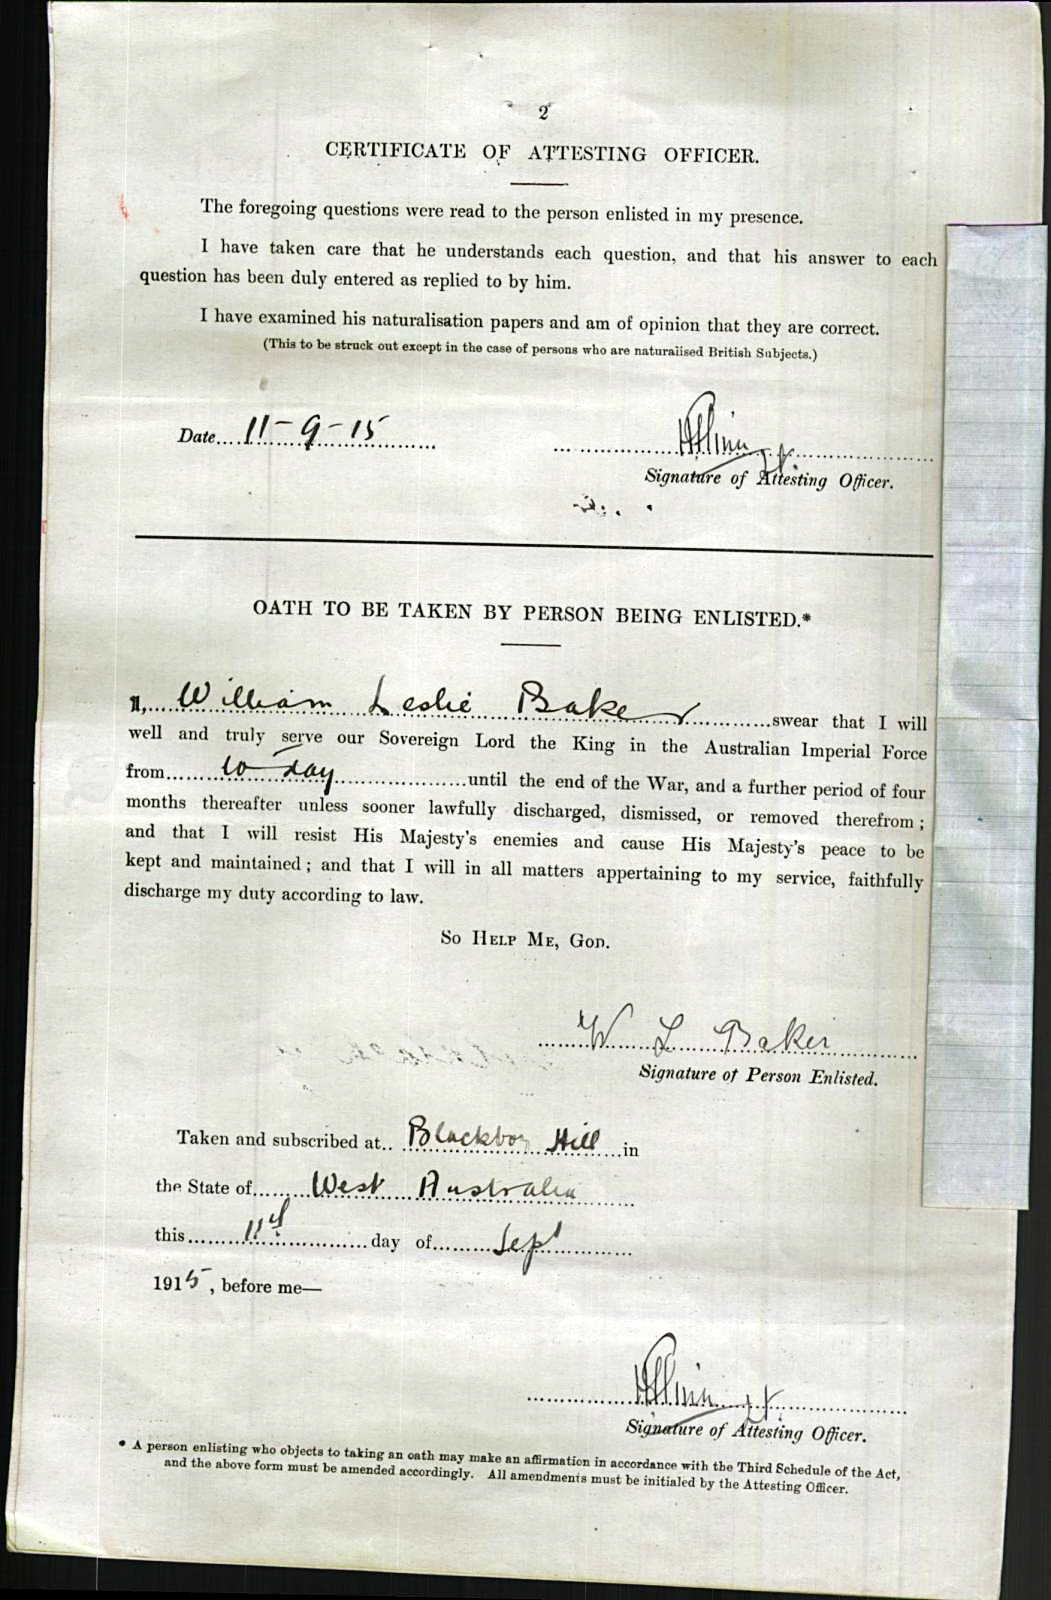 2
CERTIFICATE OF ATTESTING OFFICER.
The foregoing questions were read to the person enlisted in my presence.
I have taken care that he understands each question, and that his answer to each
question has been duly entered as replied to by him.
I have examined his naturalisation papers and am of opinion that they are correct.
(This to be struck out except in the case of persons who are naturalised British Subjects.)
Date 11-9-15
Lt.
Signature of Attesting Officer.
OATH TO BE TAKEN BY PERSON BEING ENLISTED.*
I, William Leslie Baker swear that I will
well and truly serve our Sovereign Lord the King in the Australian Imperial Force
from to day until the end of the War, and a further period of four
months thereafter unless sooner lawfully discharged, dismissed, or removed therefrom;
and that I will resist His Majesty's enemies and cause His Majesty's peace to be
kept and maintained; and that I will in all matters appertaining to my service, faithfully
discharge my duty according to law.
So Help Me, God.
W L Baker
Signature of Person Enlisted.
Taken and subscribed at Blackboy Hill in
the State of West Australia
this 11th day of Sept
1915, before me—
Lt.
Signature of Attesting Officer.
* A person enlisting who objects to taking an oath may make an affirmation in accordance with the Third Schedule of the Act,
and the above form must be amended accordingly. All amendments must be initialed by the Attesting Officer.